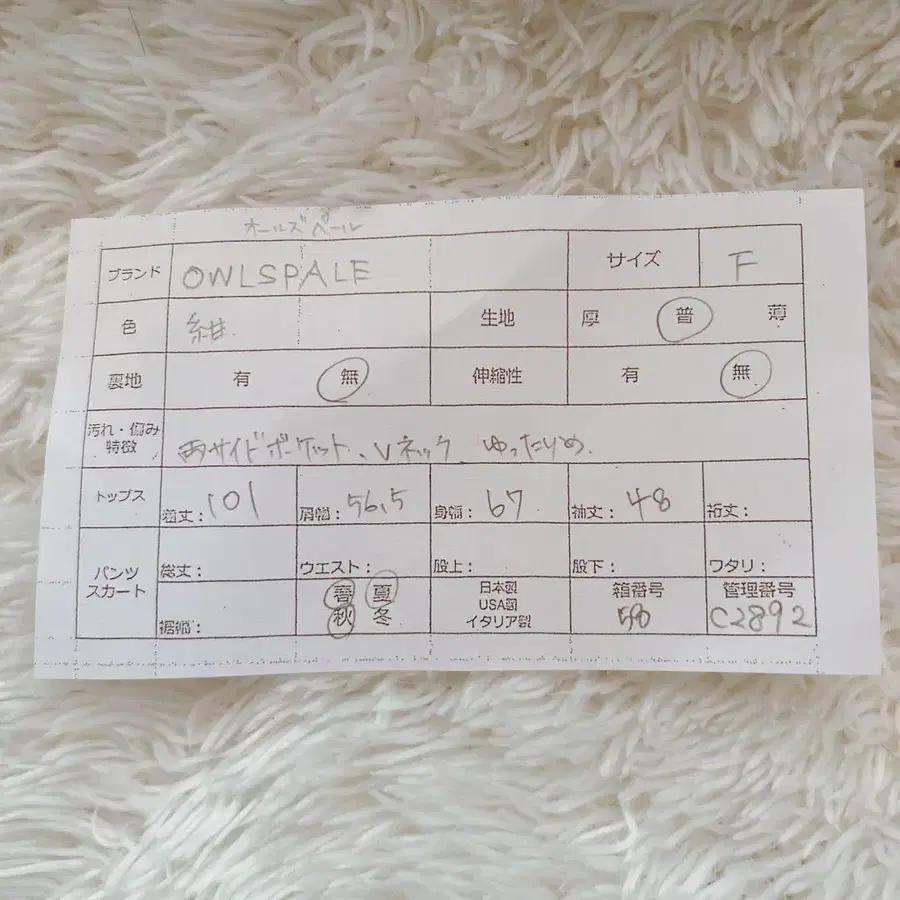 オールズペール
ブランド OWLSPALE サイズ F
色 紺 生地 厚 普 薄
裏地 有 無 伸縮性 有 無
汚れ・傷み
特徴 両サイドポケット、Vネック、ゆったりめ、
トップス 着丈:101 肩幅:56,5 身幅:67 袖丈:48 裄丈:
パンツ
スカート 総丈: ウエスト: 股上: 股下: ワタリ:
裾幅: 春 夏 秋 冬 日本製 USA製 イタリア製 箱番号 管理番号 C2892